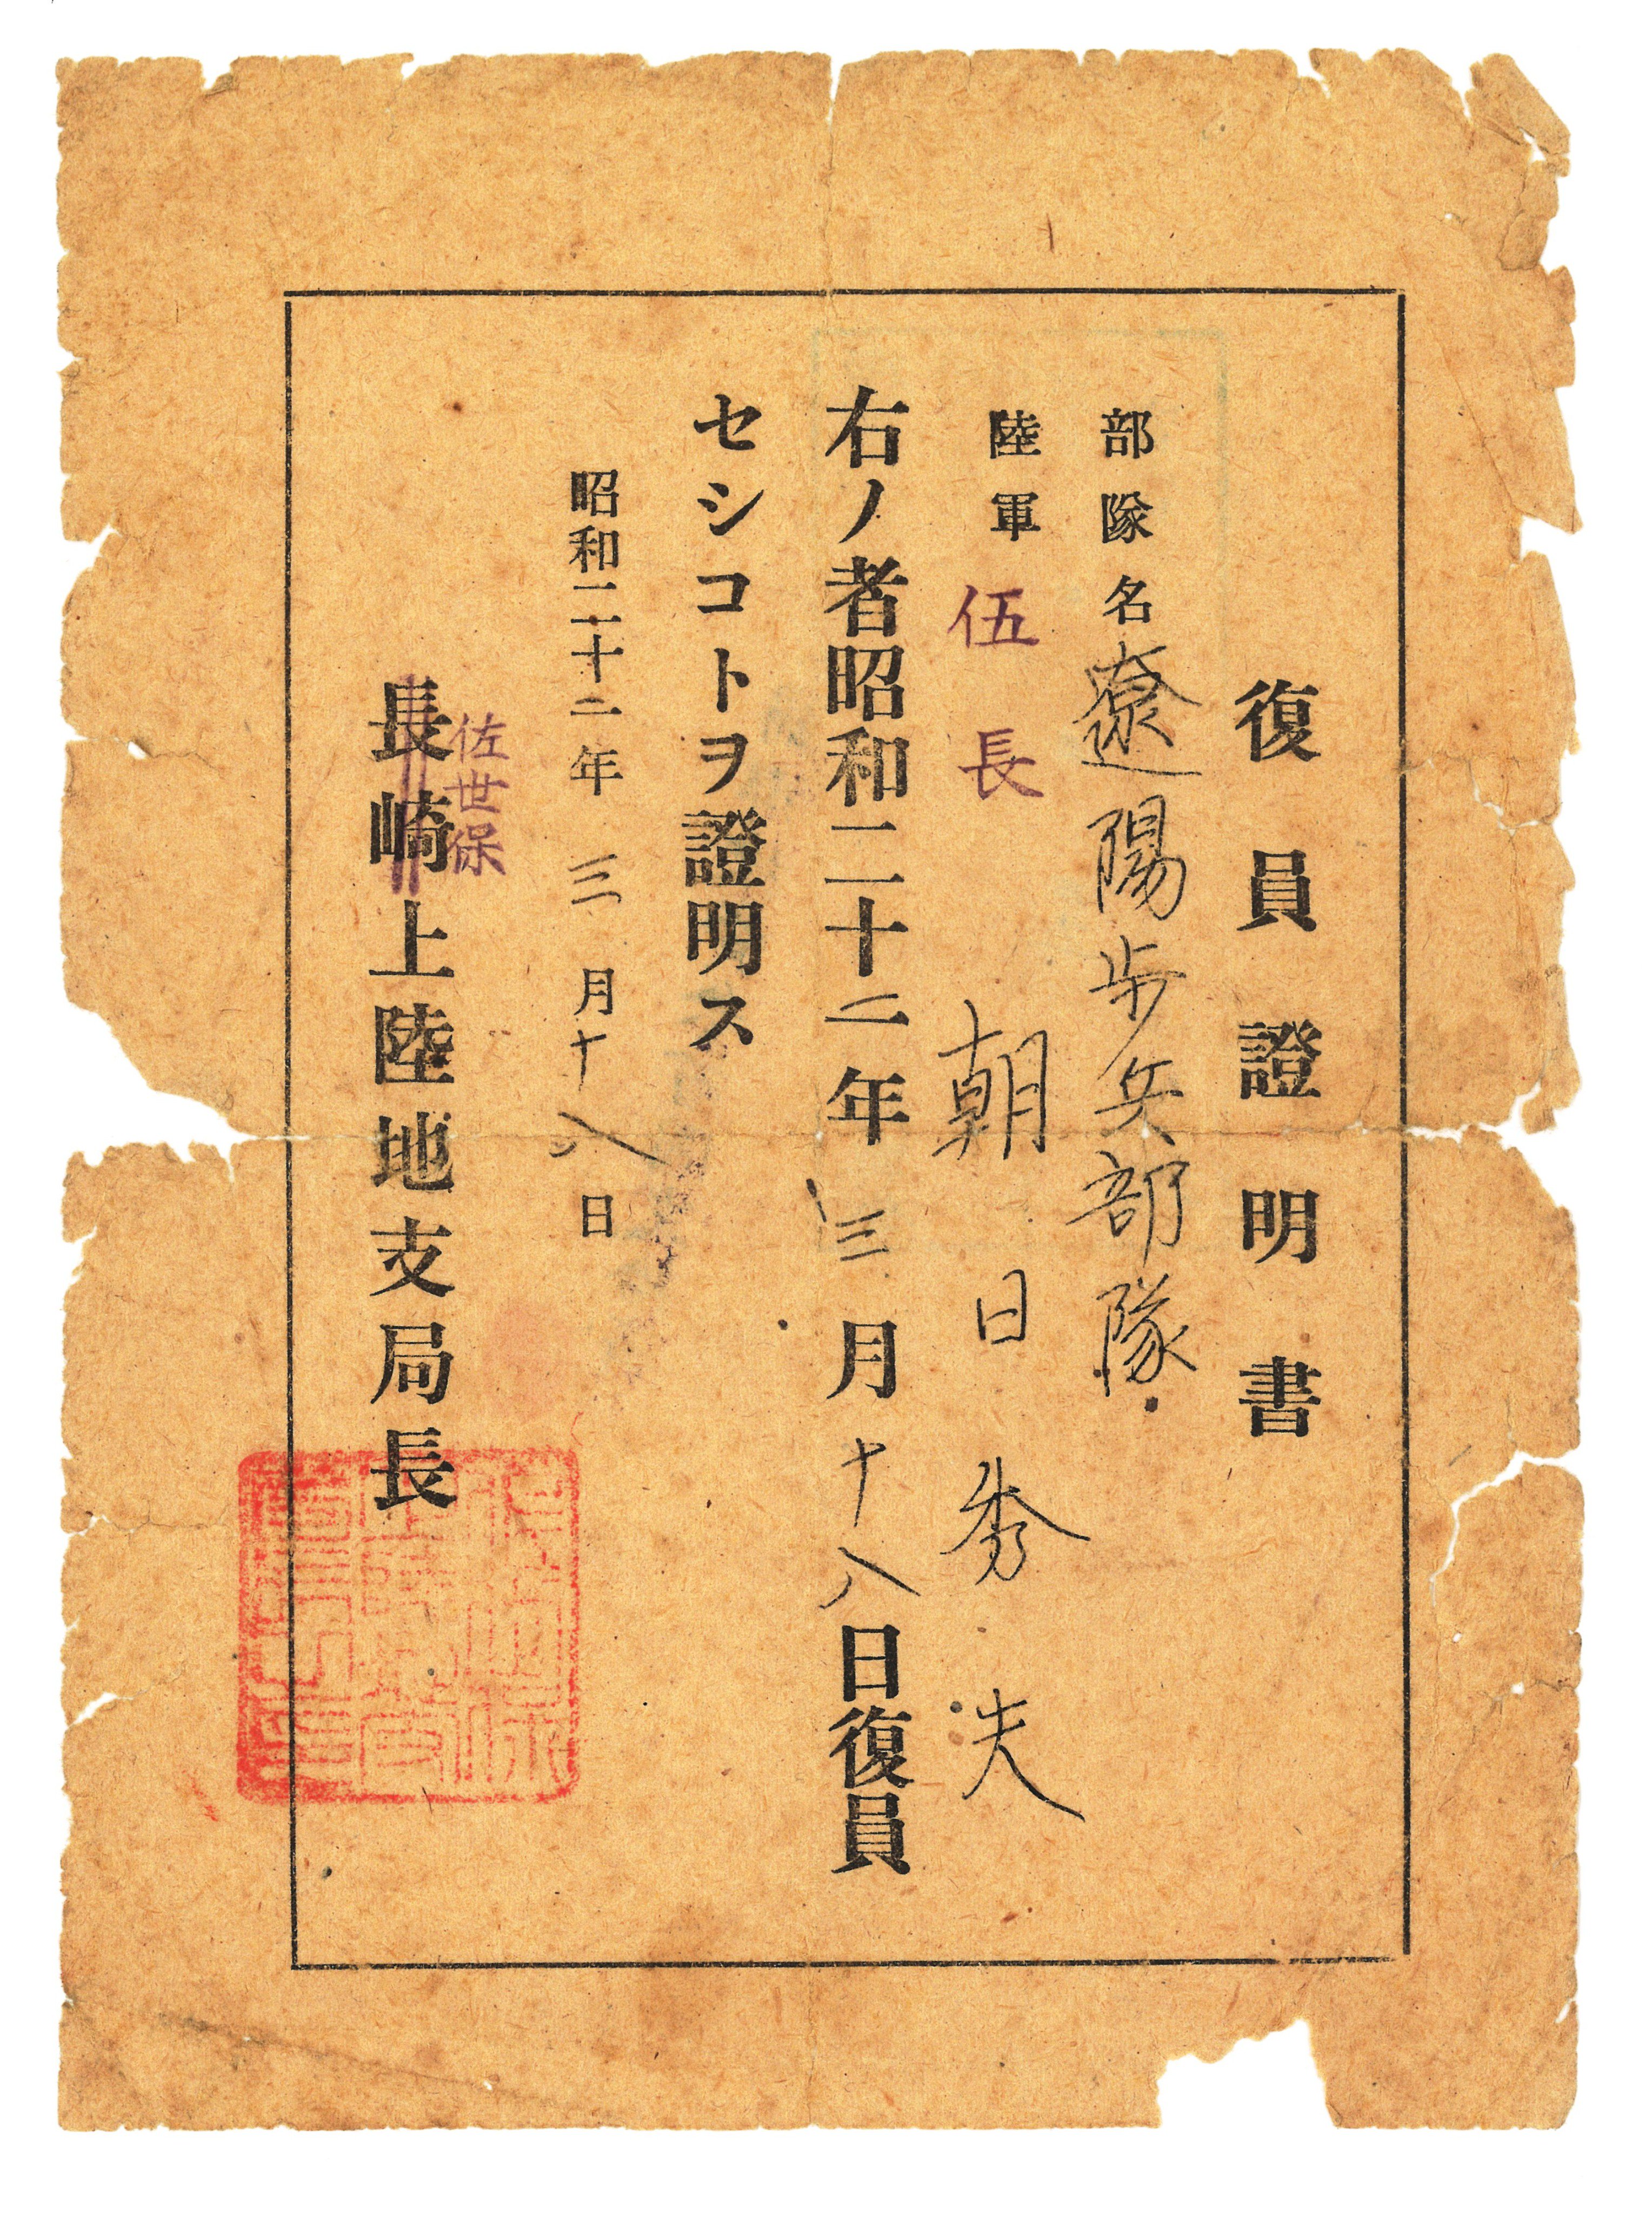 復員證明書
部隊名遼陽歩兵部隊
陸軍伍長 朝日秀夫
右ノ者昭和二十二年三月十八日復員
セシコトヲ證明ス
昭和二十二年三月十八日
佐世保
長崎上陸地支局長